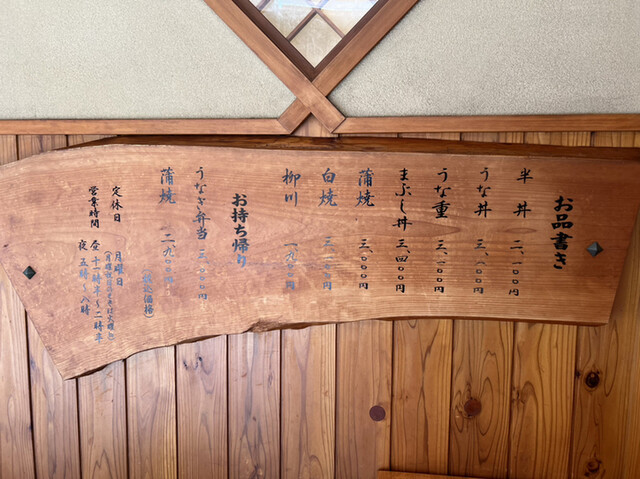 お品書き
半丼 二、一〇〇円
うな丼 三、一〇〇円
うな重 三、一〇〇円
まぶし丼 三、四〇〇円
蒲焼 三、〇〇〇円
白焼 三、一〇〇円
柳川 一、九〇〇円
お持ち帰り
うなぎ弁当 三、〇〇〇円
蒲焼 二、九〇〇円
(税込価格)
定休日 月曜日
(月曜祝日のときは火曜日)
営業時間 昼 十一時半〜二時半
夜 五時〜八時